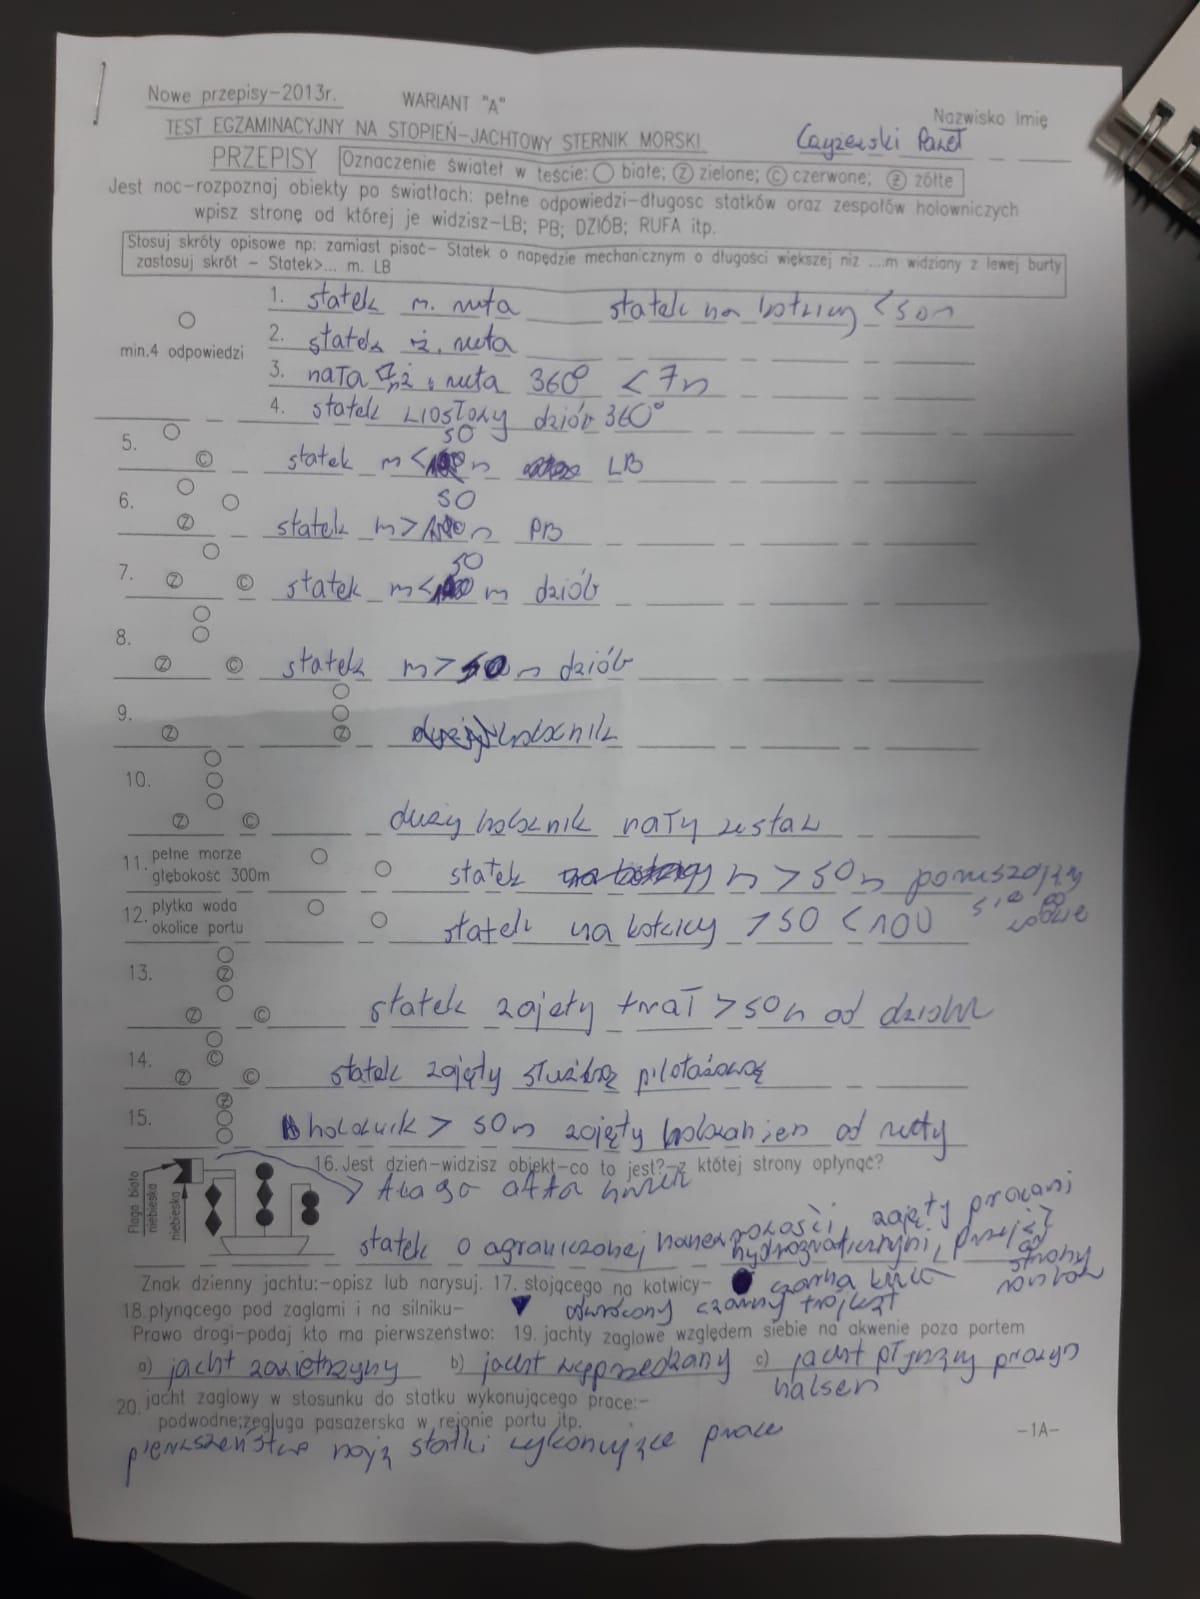 Nowe przepisy-2013r. WARIANT "A"
Nazwisko Imię
TEST EGZAMINACYJNY NA STOPIEŃ-JACHTOWY STERNIK MORSKI
Paweł
PRZEPISY Oznaczenie świateł w teście: ○ białe; Ⓩ zielone; Ⓒ czerwone; Ⓩ żółte
Jest noc-rozpoznaj obiekty po światłach: pełne odpowiedzi-długosc statków oraz zespołów holowniczych
wpisz stronę od której je widzisz-LB; PB; DZIÓB; RUFA itp.
Stosuj skróty opisowe np: zamiast pisać- Statek o napędzie mechanicznym o długości większej niz ....m widziany z lewej burty
zastosuj skrót - Statek>... m. LB
1. statek m. rufa statek na kotwicy <50m
2. statek ż. rufa
min.4 odpowiedzi
3. rufa 360° <7m
4. statek wiosłowy dziób 360°
5. Ⓒ statek m< 50 m LB
6. Ⓩ statek m> 50 m PB
7. Ⓩ Ⓒ statek m< 50 m dziób
8. Ⓩ Ⓒ statek m>50m dziób
9. Ⓩ Ⓩ holownik
10. Ⓩ Ⓒ duży holownik mały zestaw
11. pełne morze
głębokość 300m
statek m >50m poruszający się po wodzie
12. płytka woda
okolice portu
statek na kotwicy >50 <100
13. Ⓩ Ⓩ Ⓒ statek zajęty trał >50m od dziobu
14. Ⓒ Ⓩ Ⓒ statek zajęty służbą pilotażową
15. Ⓩ holownik > 50m zajęty holowaniem od rufy
16. Jest dzień-widzisz obiekt-co to jest?-z której strony opłynąć?
Flaga biało niebieska
niebieska
flaga alfa
statek o ograniczonej manewrowości, zajęty pracami hydrograficznymi, przejść od strony rombów
Znak dzienny jachtu:-opisz lub narysuj. 17. stojącego na kotwicy- czarna kula
18. płynącego pod zaglami i na silniku- odwrócony czarny trójkąt
Prawo drogi-podaj kto ma pierwszeństwo: 19. jachty zaglowe względem siebie na akwenie poza portem
a) jacht zawietrzny b) jacht wyprzedzany c) jacht płynący prawym halsem
20. jacht zaglowy w stosunku do statku wykonującego prace:-
podwodne;żegluga pasazerska w rejonie portu itp.
pierwszeństwo mają statki wykonujące prace
-1A-